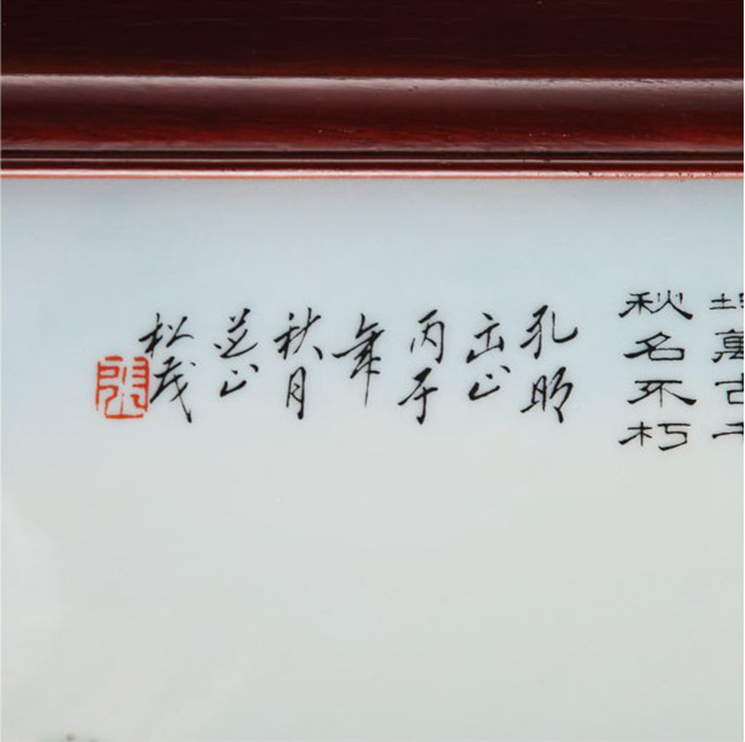 萬古千
秋名不朽
孔明
出山
丙子
年
秋月
芝山
松茂